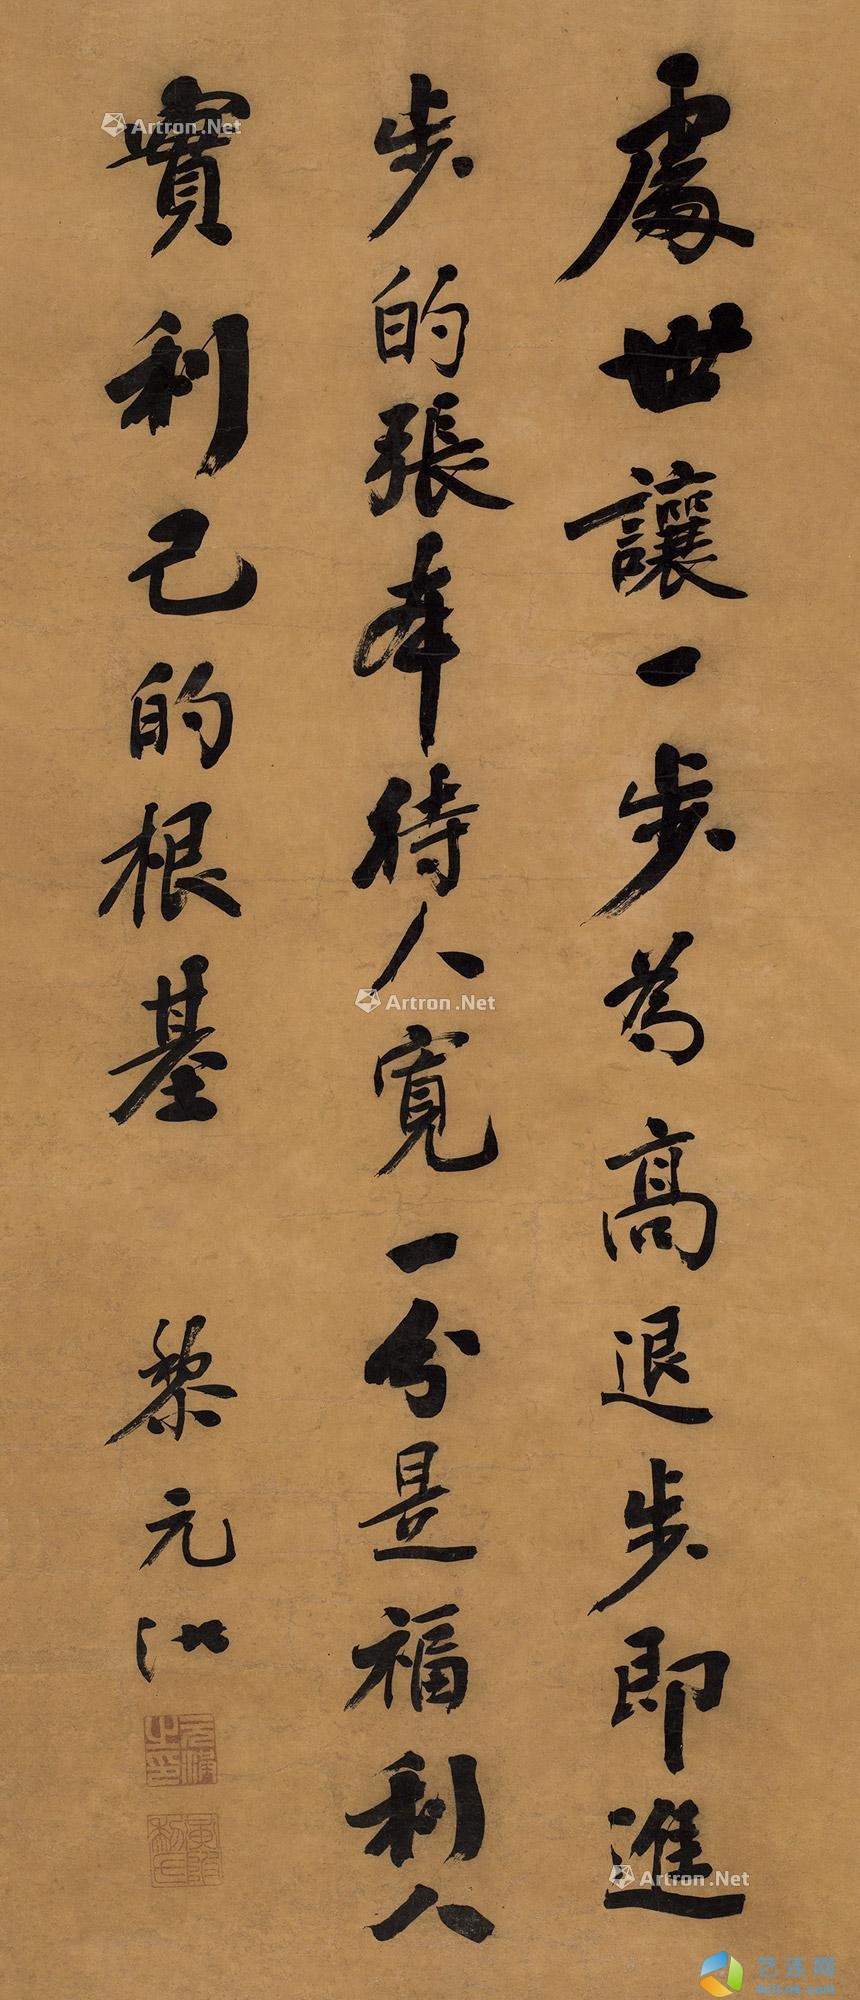 處世讓一步為高退步即進
步的張本待人寬一分是福利人
實利己的根基
黎元洪
元洪之印
Artron.Net
Artron.Net
Artron.Net
艺连网
ArtLnk.com